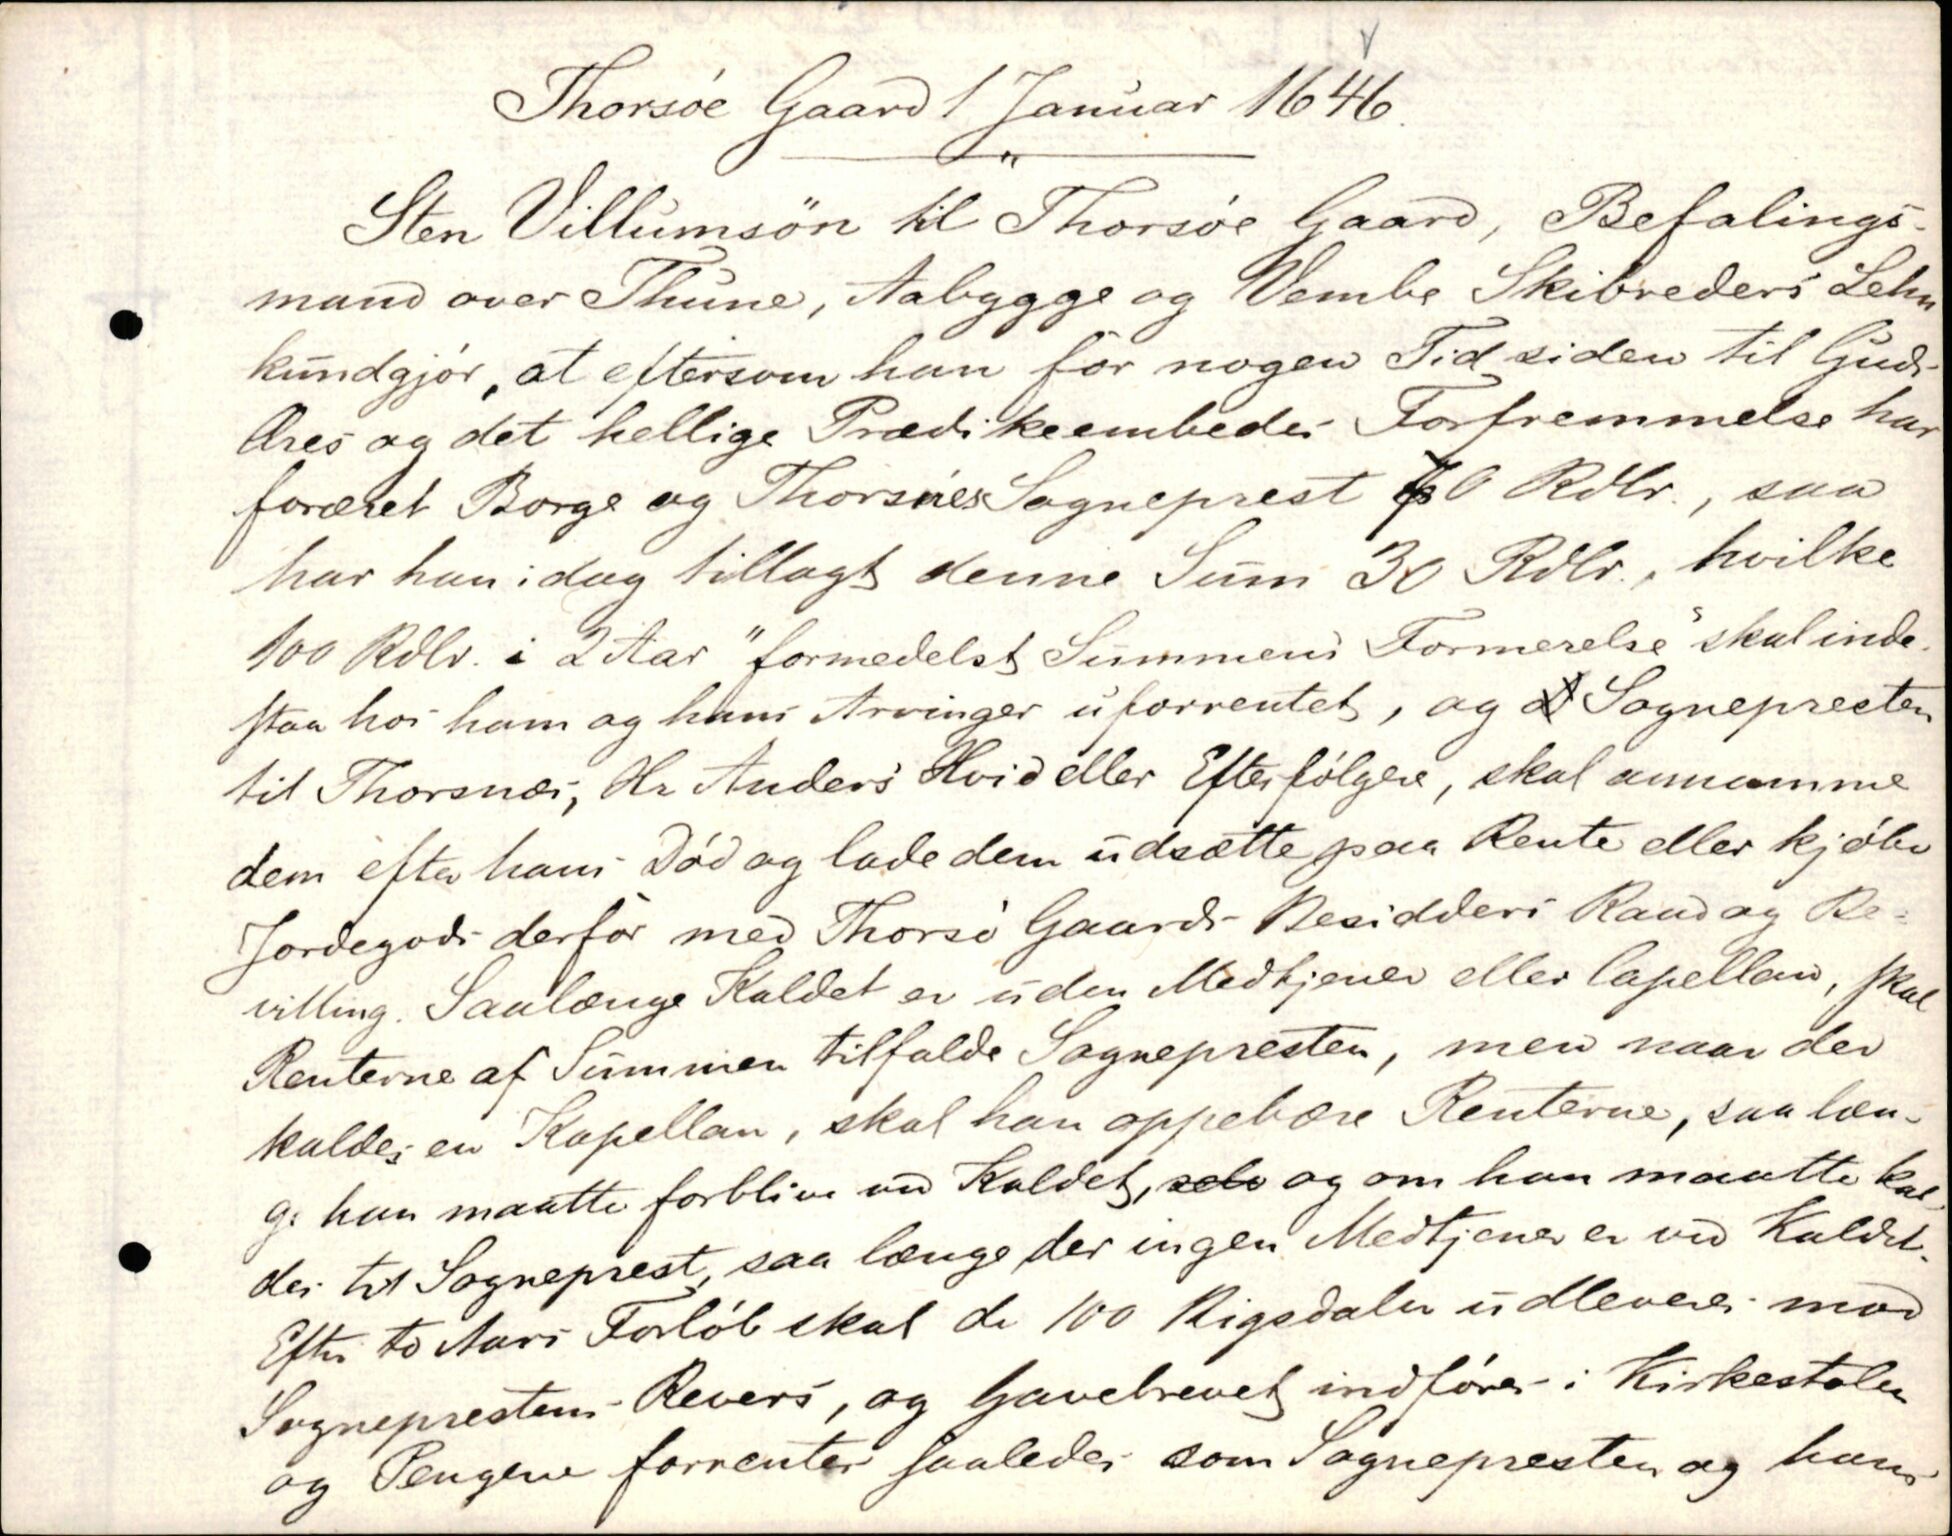 Thorsóe Gaard 1 Januar 1646.
Sten Villumsön til Thorsóe Gaard, Befalings-
mand over Thune, Aabygge og Vembe Skibreders Lehn
kundgjór, at eftersom han for nogen Tid siden til Guds
Æres og det hellige Prædikeembedes Forfremmelse har
foræret Borge og Thorsnes Sogneprest 70 Rdlr., saa
har han idag tillagt denne Sum 30 Rdlr., hvilke
100 Rdlr. i 2 Aar "formedelst Summens Formerelse" skal inde-
staa hos ham og hans Arvinger uforrentet, og Sognepresten
til Thorsnæs, Hr Anders Hvid eller Efterfólgere, skal annamme
dem efter hans Dód og lade dem udsætte paa Rente eller kjóbe
Jordegods derfór med Thorsó Gaards Besidders Raad og Be-
villing. Saalænge Kaldet er uden Medtjener eller Capellan, skal
Renterne af Summen tilfalde Sognepresten, men naar der
kaldes en Kapellan, skal han oppebære Renterne, saa læn-
ge han maatte forblive ved Kaldet, og om han maatte kal-
des til Sogneprest, saa længe der ingen Medtjener er ved Kaldet.
Efter to Aars Forlób skal de 100 Rigsdaler udleveres mod
Sogneprestens Revers, og Gavebrevet indfóres i Kirkestolen
og Pengene forrentes saaledes som Sognepresten og hans